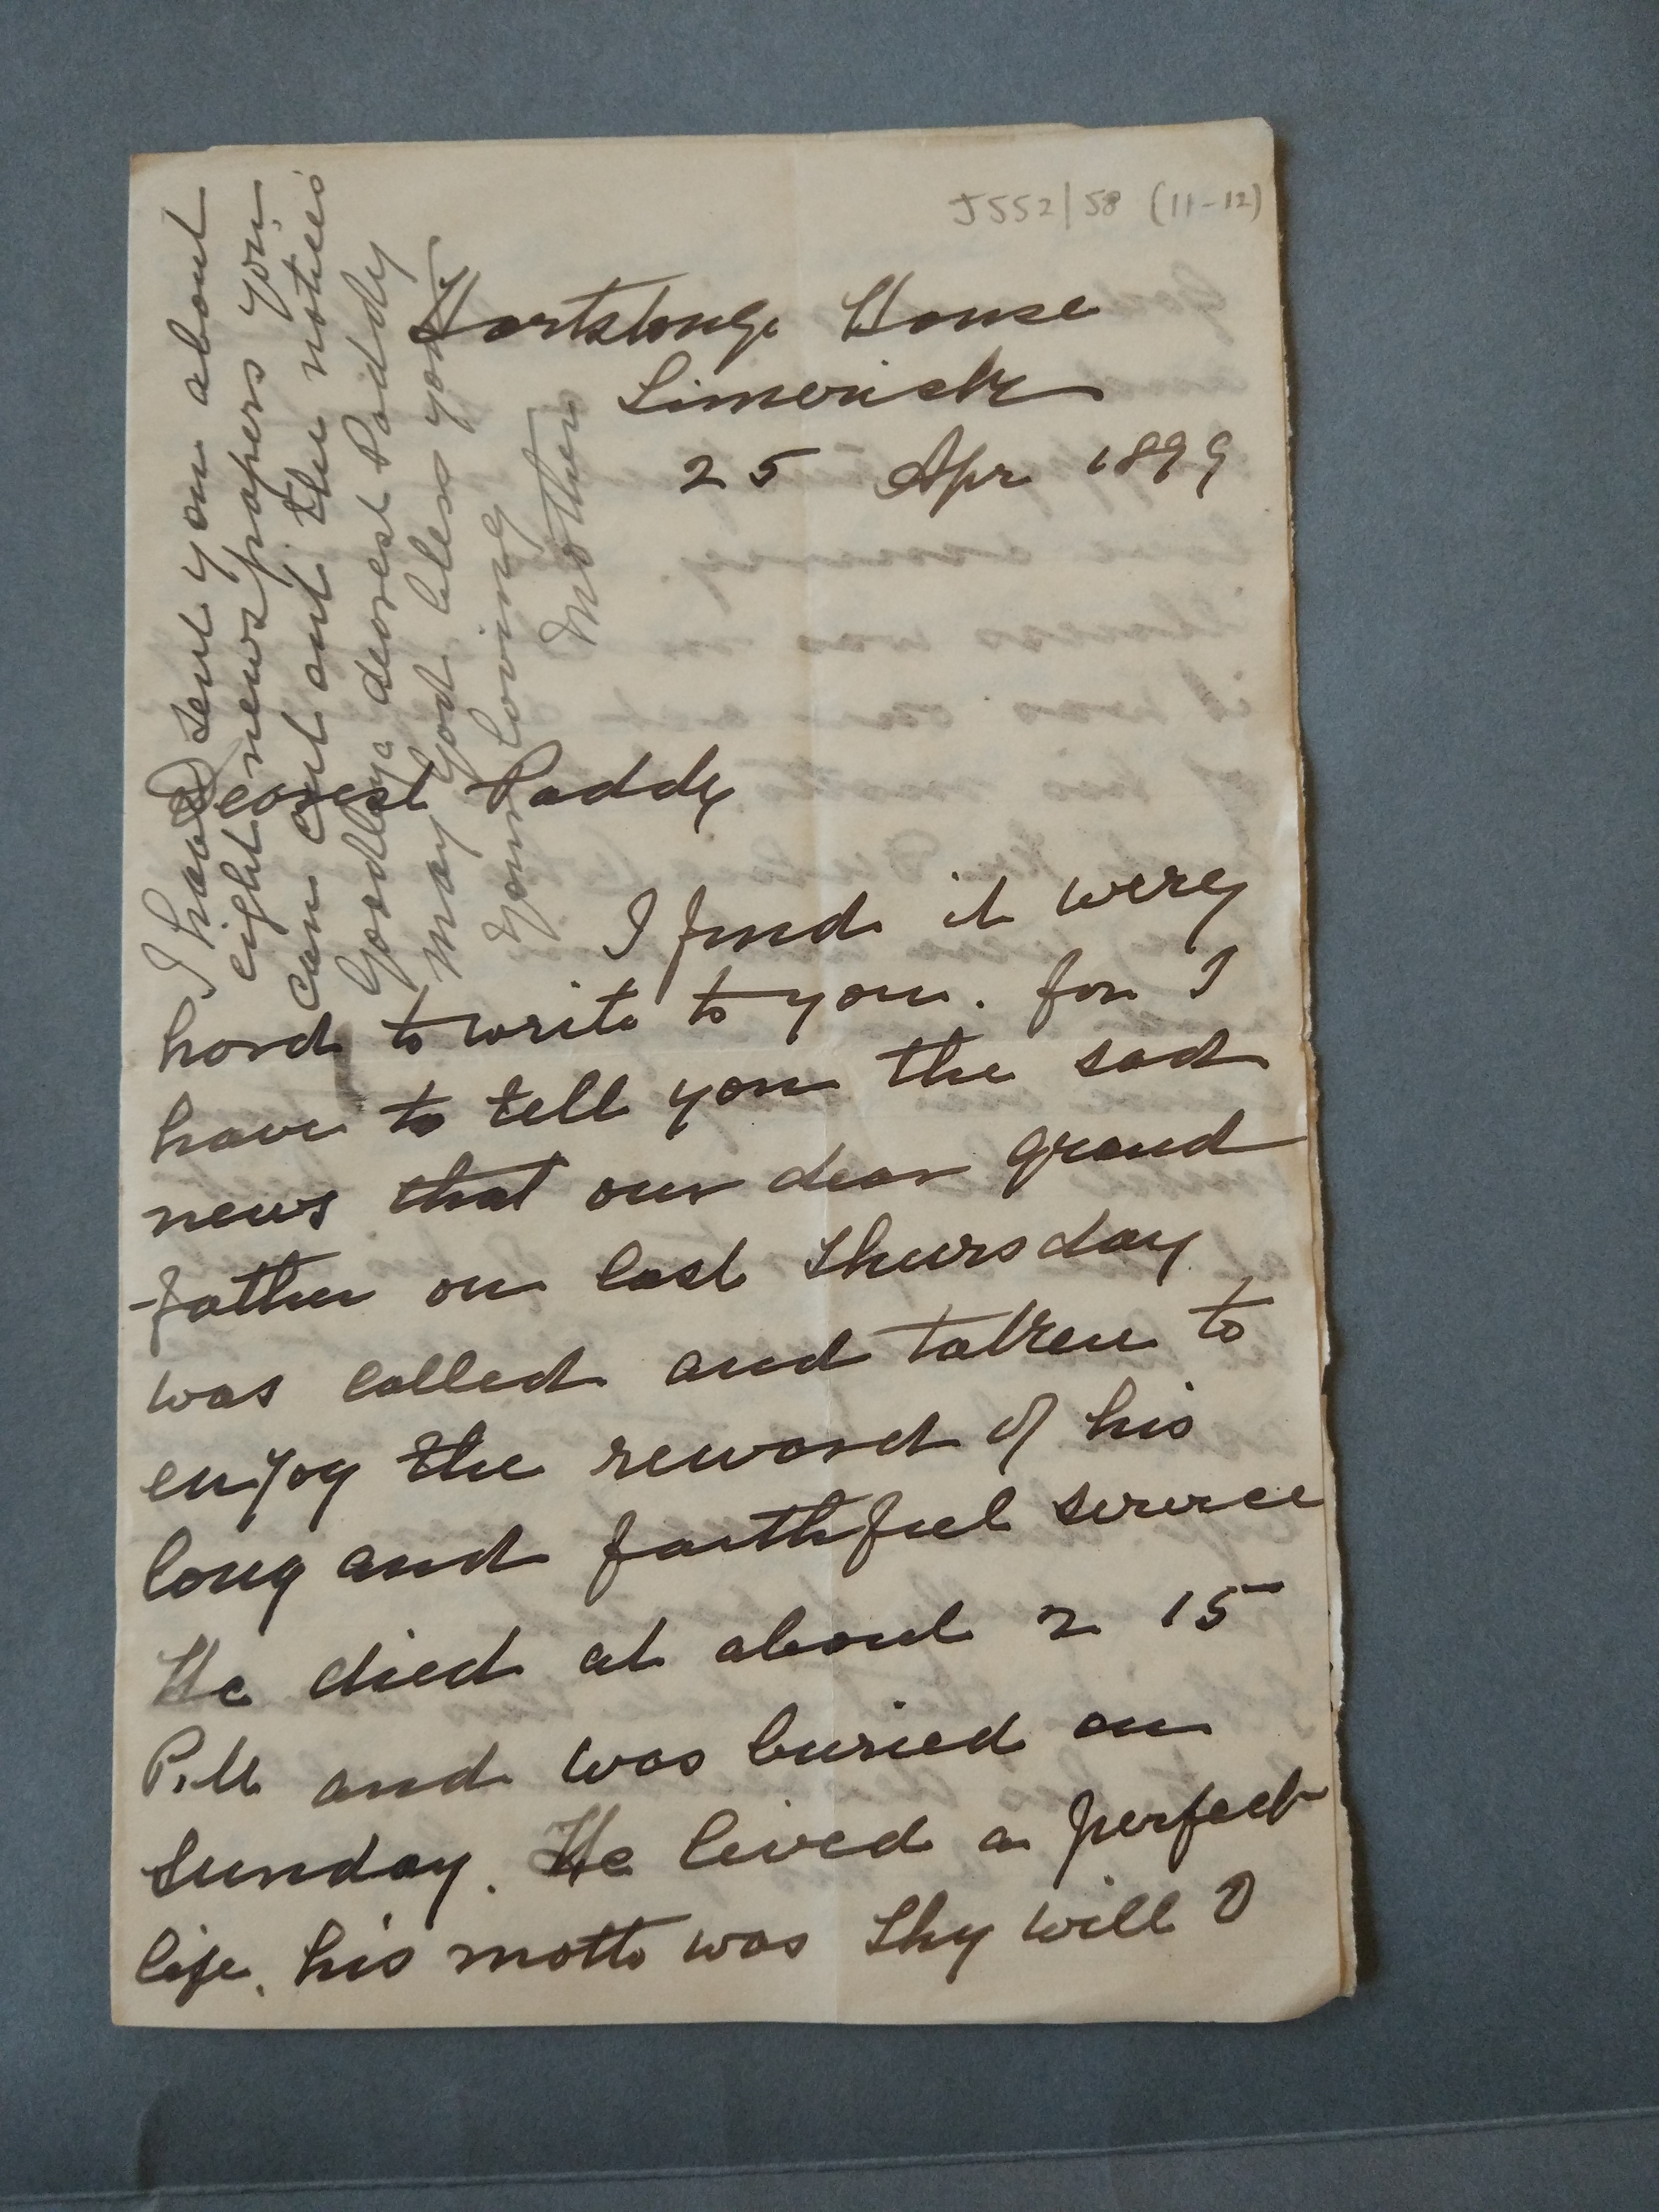 J552/58 (11-12)
Hartstonge House
Limerick
25 Apr 1899
Dearest Paddy
I find it very
hard to write to you. for I
have to tell you the sad
news that our dear grand
-father on last Thursday
was called and taken to
enjoy the reward of his
long and faithful service
He died at about 2 15
P.M and was buried on
Sunday. He lived a perfect
life. his motto was Thy will O
I have sent you about
eight newspapers you
can cut out the notices
Goodbye dearest Paddy
may God bless you
your loving
Mother